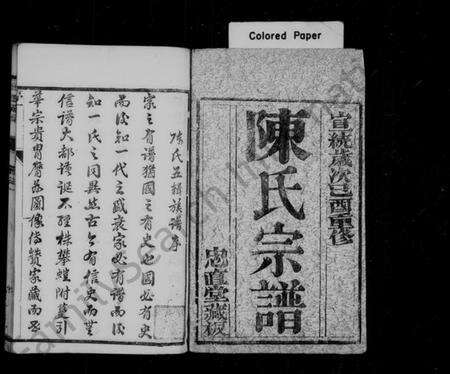 Colored Paper
宣統歲次己酉重修
陳氏宗譜
忠直堂藏板
陳氏五修族譜序
家之有譜猶國之有史也國必有史
而後知一代之盛衰家必有譜而後
知一氏之同異然古今有信史而無
信譜大都誇誕不經牽攀附葛引
華宗貴胄層為圖像傳贊家藏而
FamilySearch International